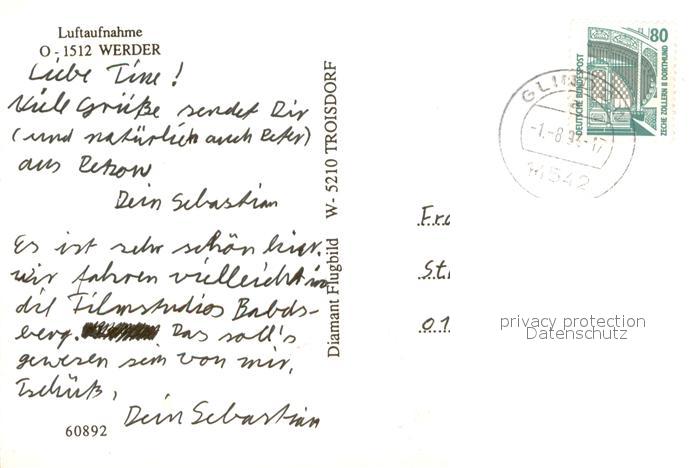 Luftaufnahme
O - 1512 WERDER
Liebe Tine!
Viele Grüße sendet Dir
(und natürlich auch Peter)
aus Petzow
Dein Sebastian
Es ist sehr schön hier.
wir fahren vielleicht in
die Filmstudios Babels-
berg. Das soll's
gewesen sein von mir,
Tschüß,
Dein Sebastian
60892
Diamant Flugbild W- 5210 TROISDORF
80
DEUTSCHE BUNDESPOST
ZECHE ZOLLERN II DORTMUND
-1.-8.93-17
14542
Fra
St
01
privacy protection
Datenschutz